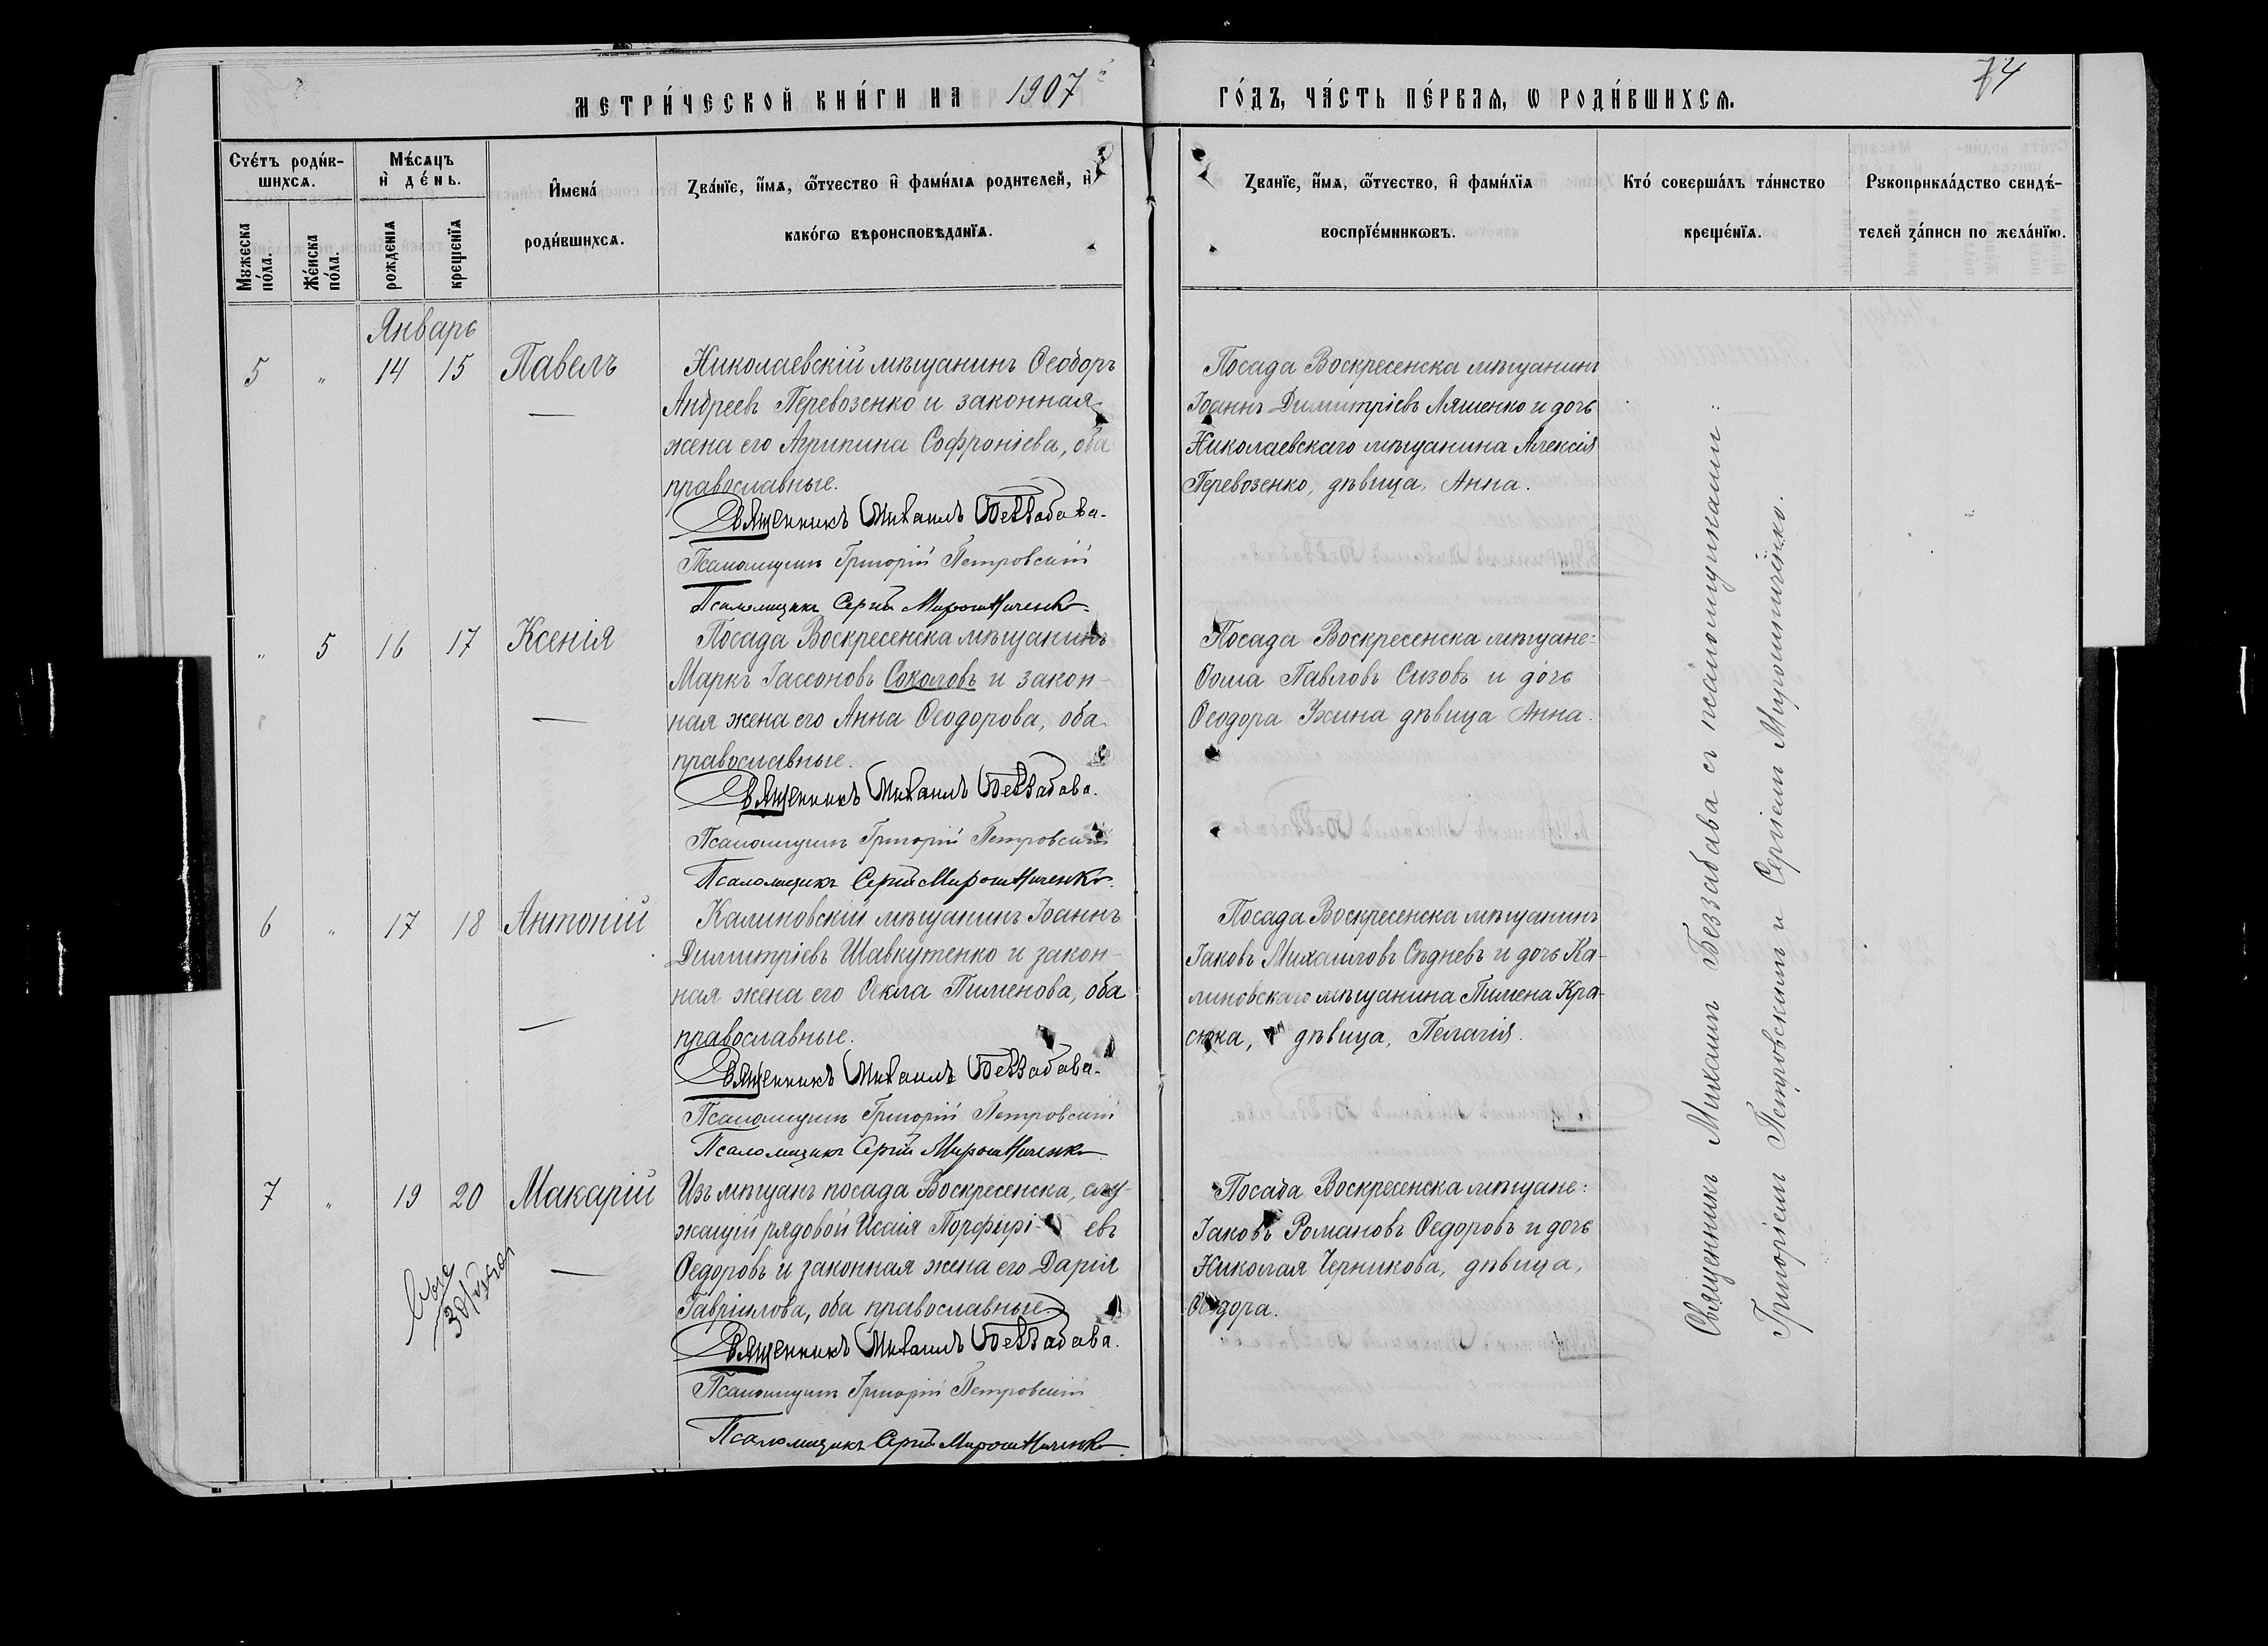 МЕТРИ́ЧЕСКОЙ КНИ́ГИ НА 1907
ГО́ДЪ, ЧА́СТЬ ПЕ́РВАѦ, Ѡ РОДИ́ВШИХСѦ.
74
Счéтъ роди́в-
шихсѧ.
Мꙋжеска
по́ла.
Же́нска
по́ла.
Мѣ́сѧцъ
и҆ де́нь.
рожденїѧ
крещенїѧ
И҆мена́
роди́вшихсѧ.
Зва́нїе, и҆́мѧ, ѻ҆́тчество и҆ фами́лїѧ родителей, и҆
како́гѡ вѣроисповѣданїѧ.
Зва́нїе, и҆́мѧ, ѻ҆́тчество, и҆ фами́лїѧ
воспрїе́мникѡвъ.
Кто́ соверша́лъ та́инство
креще́нїѧ.
Рꙋкоприкла́дство свидѣ́-
телей за́писи по жела́нїю.
Январь
5 " 14 15 Павелъ
Николаевскій мѣщанинъ Ѳеодоръ
Андреевъ Перевозенко и законная
жена его Агрипина Софроніева, оба
православные.
Священникъ Михаилъ Беззабава.
Псаломщикъ Григорій Петровскій
Псаломщикъ Сергій Мирошниченко.
Посада Воскресенска мѣщанинъ
Іоаннъ Димитріевъ Ляшенко и дочь
Николаевскаго мѣщанина Алексія
Перевозенко, дѣвица, Анна.
" 5 16 17 Ксенія
Посада Воскресенска мѣщанинъ
Маркъ Іассоновъ Соколовъ и закон-
ная жена его Анна Ѳеодорова, оба
православные.
Священникъ Михаилъ Беззабава.
Псаломщикъ Григорій Петровскій
Псаломщикъ Сергій Мирошниченко.
Посада Воскресенска мѣщане:
Ѳома Павловъ Сизовъ и дочь
Ѳеодора Ужина дѣвица Анна.
6 " 17 18 Антоній
Калиновскій мѣщанинъ Іоаннъ
Димитріевъ Шавкутенко и закон-
ная жена его Ѳекла Пименова, оба
православные.
Священникъ Михаилъ Беззабава.
Псаломщикъ Григорій Петровскій
Псаломщикъ Сергій Мирошниченко
Посада Воскресенска мѣщанинъ
Іаковъ Михаиловъ Сѣдневъ и дочь Ка-
линовскаго мѣщанина Пимена Кра-
сюка, дѣвица, Пелагія.
7 " 19 20 Макарій
Изъ мѣщанъ посада Воскресенска, слу-
жащій рядовой Исаія Порфирі-евъ
Ѳедоровъ и законная жена его Дарія
Гавріилова, оба православные.
Священникъ Михаилъ Беззабава.
Псаломщикъ Григорій Петровскій
Псаломщикъ Сергій Мирошниченко.
Посада Воскресенска мѣщане:
Іаковъ Романовъ Ѳедоровъ и дочь
Николая Черникова, дѣвица,
Ѳеодора.
Священникъ Михаилъ Беззабава съ псаломщиками:
Григоріемъ Петровскимъ и Сергіемъ Мирошниченко.